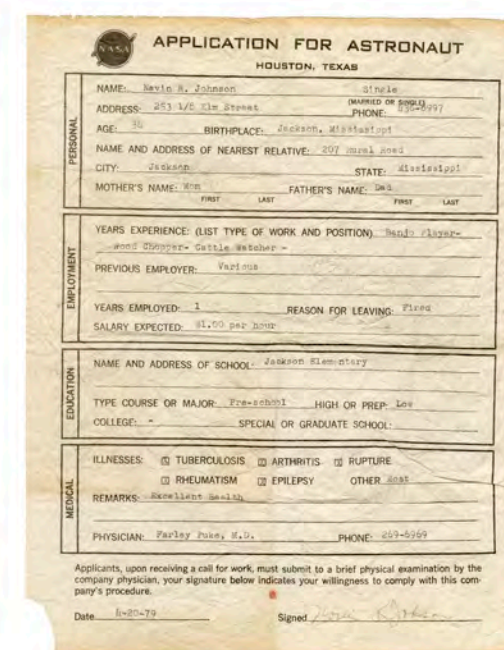 NASA
APPLICATION FOR ASTRONAUT
HOUSTON, TEXAS
PERSONAL
NAME: Kevin R. Johnson Single
(MARRIED OR SINGLE)
ADDRESS: 253 1/2 Elm Street PHONE: 636-6997
AGE: 36 BIRTHPLACE: Jackson, Mississippi
NAME AND ADDRESS OF NEAREST RELATIVE: 207 Rural Road
CITY: Jackson STATE: Mississippi
MOTHER'S NAME: Mom FATHER'S NAME: Dad
FIRST LAST FIRST LAST
EMPLOYMENT
YEARS EXPERIENCE: (LIST TYPE OF WORK AND POSITION) Banjo Player-
Wood Chopper- Cattle Watcher -
PREVIOUS EMPLOYER: Various
YEARS EMPLOYED: 1 REASON FOR LEAVING: Fired
SALARY EXPECTED: $1.00 per hour
EDUCATION
NAME AND ADDRESS OF SCHOOL: Jackson Elementary
TYPE COURSE OR MAJOR: Pre-school HIGH OR PREP: Low
COLLEGE: - SPECIAL OR GRADUATE SCHOOL:
MEDICAL
ILLNESSES: TUBERCULOSIS ARTHRITIS RUPTURE
RHEUMATISM EPILEPSY OTHER Most
REMARKS: Excellent Health
PHYSICIAN: Farley Puke, M.D. PHONE: 269-6969
Applicants, upon receiving a call for work, must submit to a brief physical examination by the
company physician, your signature below indicates your willingness to comply with this com-
pany's procedure.
Date 4-20-79 Signed